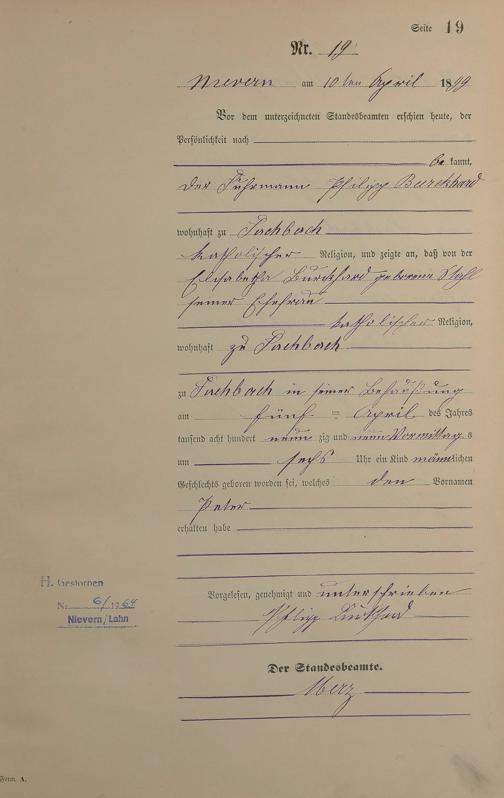 Seite 19
Nr. 19
Nievern am 10ten April 1899
Vor dem unterzeichneten Standesbeamten erschien heute, der
Persönlichkeit nach
be kannt,
der Fuhrmann Philipp Burckhard
wohnhaft zu Fachbach
katholischer Religion, und zeigte an, daß von der
Elisabetha Burckhard geborene
seiner Ehefrau
katholischer Religion,
wohnhaft zu Fachbach
zu Fachbach in seiner Behaußung
am fünf = April des Jahres
tausend acht hundert neun zig und neun Vormittag s
um sechs Uhr ein Kind männlichen
Geschlechts geboren worden sei, welches den Vornamen
Peter
erhalten habe
Vorgelesen, genehmigt und unterschrieben
Philipp Burkhard
Der Standesbeamte.
Merz
H. Gestorben
Nr. 6/1964
Nievern/Lahn
Form. A.